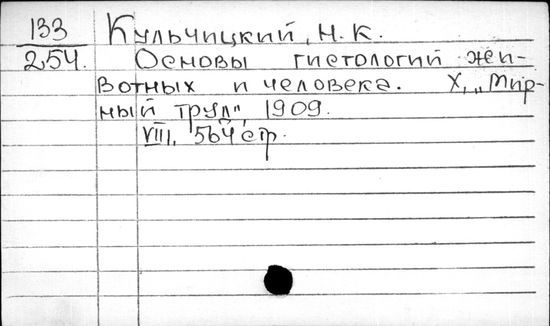 133 Кульчицкий, Н. К.
254. Основы гистологий жи-
вотных и человека. Х, "Мир-
ный труд", 1909.
VIII, 564 стр.